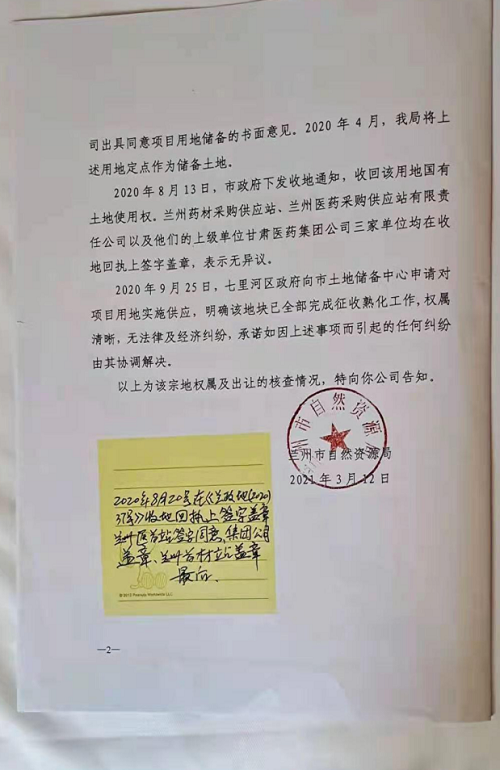 司出具同意项目用地储备的书面意见。2020 年 4 月，我局将上
述用地定点作为储备土地。
2020 年 8 月 13 日，市政府下发收地通知，收回该用地国有
土地使用权。兰州药材采购供应站、兰州医药采购供应站有限责
任公司以及他们的上级单位甘肃医药集团公司三家单位均在收
地回执上签字盖章，表示无异议。
2020 年 9 月 25 日，七里河区政府向市土地储备中心申请对
项目用地实施供应，明确该地块已全部完成征收熟化工作，权属
清晰，无法律及经济纠纷，承诺如因上述事项而引起的任何纠纷
由其协调解决。
以上为该宗地权属及出让的核查情况，特向你公司告知。
兰州市自然资源局
兰州市自然资源局
2021 年 3 月 12 日
2020年8月20号在《兰政地(2020)
37号》收地回执上签字盖章
兰州医药站签字同意、集团公司
盖章、兰州药材站盖章
—2—